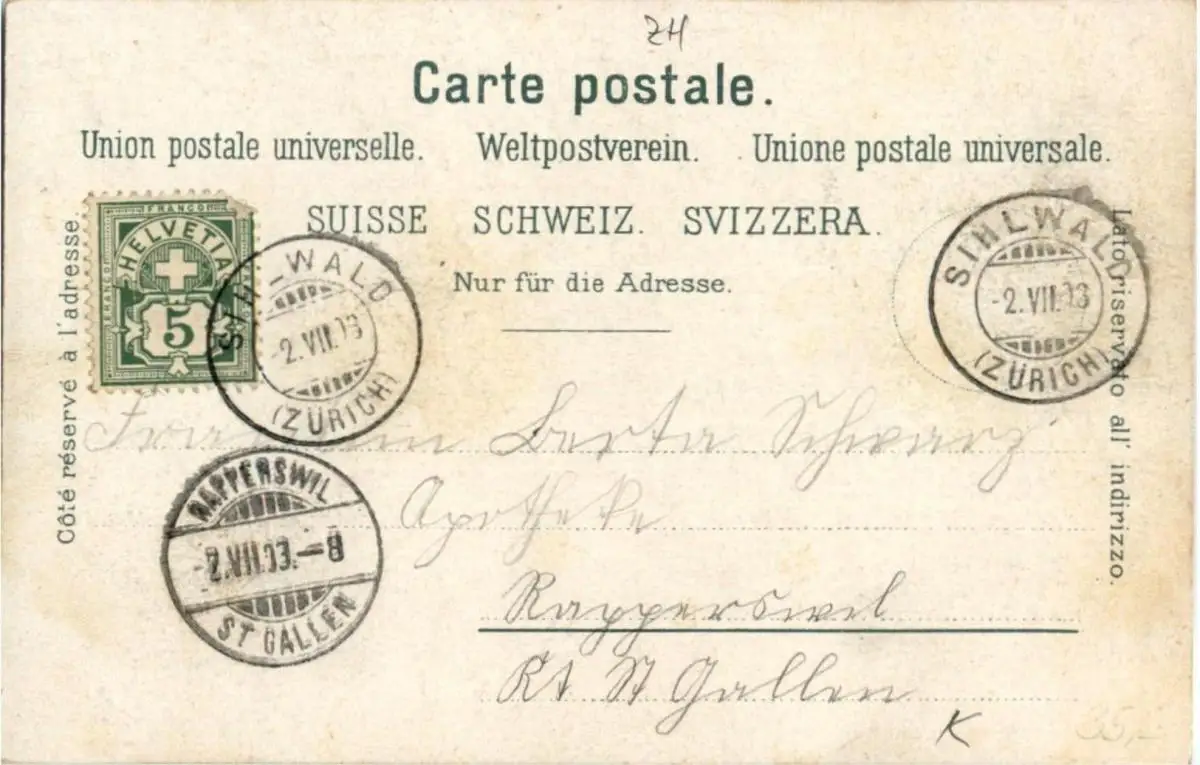 ZH
Carte postale.
Union postale universelle. Weltpostverein. Unione postale universale.
SUISSE SCHWEIZ. SVIZZERA.
Nur für die Adresse.
Côté réservé à l'adresse.
Lato riservato all' indirizzo.
FRANCO
FRANCO
HELVETIA
5
SIHLWALD
-2.VII.03
(ZÜRICH)
SIHLWALD
-2.VII.03
(ZÜRICH)
RAPPERSWIL
-2.VII.03.-8
ST GALLEN
Fräulein Berta Schwarz
Apotheke
Rapperswil
Kt St Gallen
K
35,-